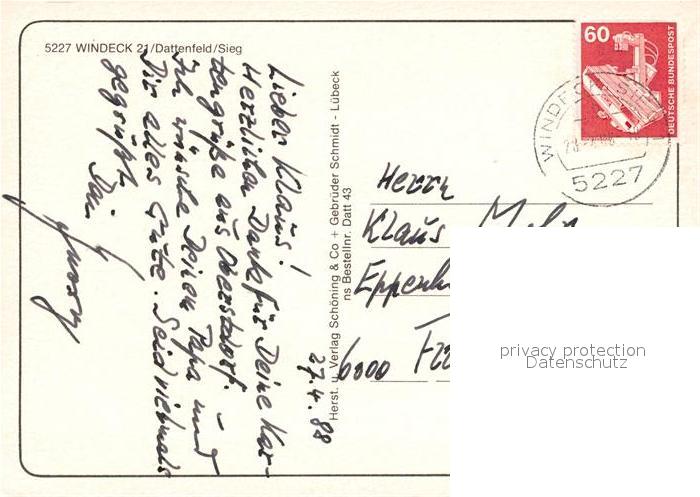 5227 WINDECK 21/Dattenfeld/Sieg
Lieber Klaus!
Herzlichen Dank für Deine Kar-
tengrüße aus Oberstdorf.
Ich wünsche Deinem Papa und
Dir alles Gute. Seid vielmals
gegrüßt.
Dein
27.4.88
Herst. u. Verlag Schöning & Co + Gebrüder Schmidt - Lübeck
ns Bestellnr. Datt 43
60
DEUTSCHE BUNDESPOST
WINDECK
5227
Herrn
Klaus
6000
privacy protection
Datenschutz